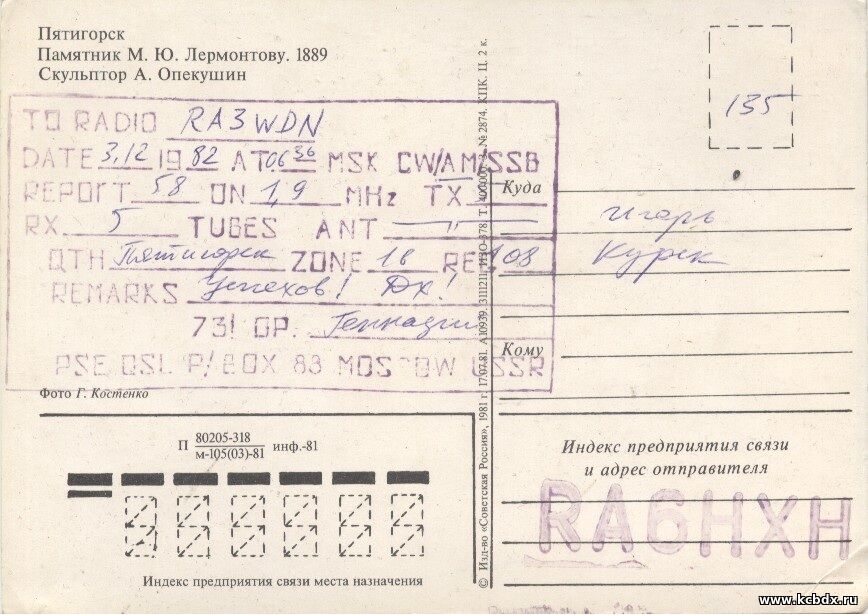 Пятигорск
Памятник М. Ю. Лермонтову. 1889
Скульптор А. Опекушин
135
TO RADIO RA3WDN
DATE 3,12 1982 AT 06 36 MSK CW/AM/SSB
REPORT 58 ON 1,9 MHz TX
RX 5 TUBES ANT —〃—
QTH Пятигорск ZONE 16 REG 108
REMARKS Успехов! Dx!
73! OP. Геннадий
PSE QSL P/BOX 88 MOSCOW USSR
Куда
Игорь
Курск
Кому
Фото Г. Костенко
П 80205-318 / м-105(03)-81 инф.-81
Индекс предприятия связи места назначения
© Изд-во «Советская Россия», 1981 г. 17.07.81. А10939. 3111211. ИЗО-378. Т. № 2874. КПК. Ц. 2 к.
Индекс предприятия связи
и адрес отправителя
RA6HXH
www.kcbdx.ru